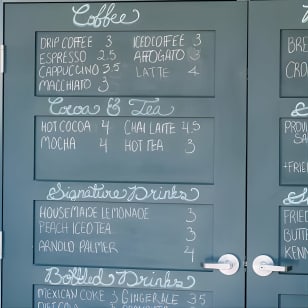 Coffee
DRIP COFFEE 3 ICED COFFEE 3
ESPRESSO 2.5 AFFOGATO 3
CAPPUCCINO 3.5 LATTE 4
MACCHIATO 3
Cocoa & Tea
HOT COCOA 4 CHAI LATTE 4.5
MOCHA 4 HOT TEA 3
Signature Drinks
HOUSEMADE LEMONADE 3
PEACH ICED TEA 3
ARNOLD PALMER 4
Bottled Drinks
MEXICAN COKE 3 GINGERALE 3.5
DIET COKE
BRE
CRO
&
PROV
SA
+FRIE
FRIED
BUTT
KENN